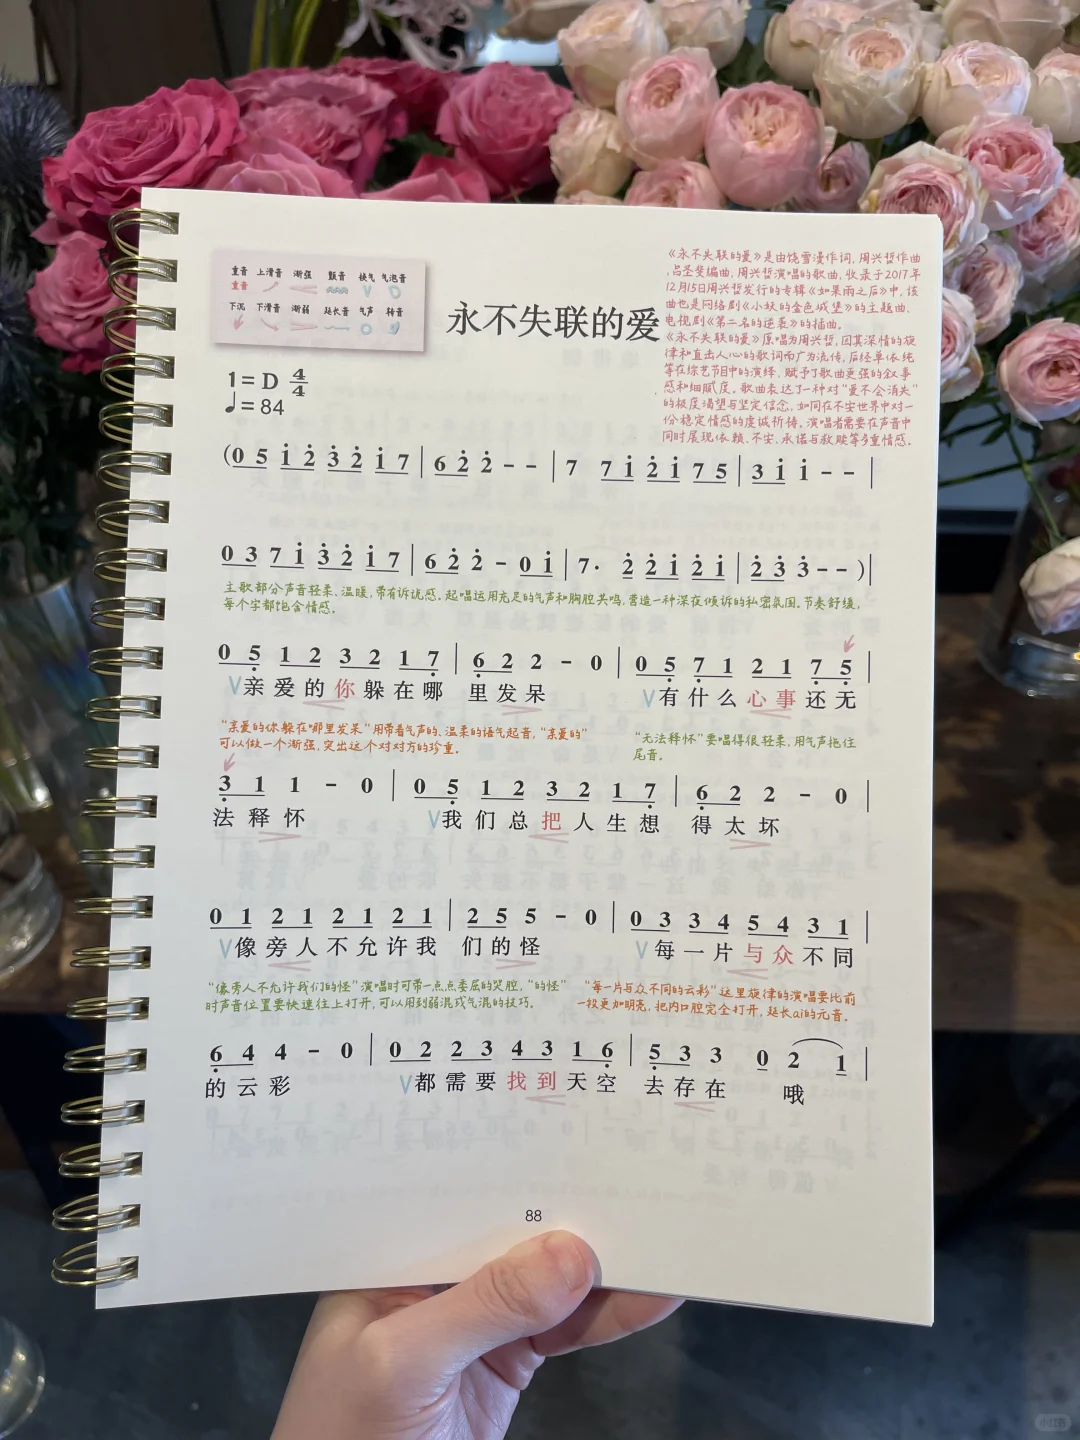 重音 上滑音 渐强 颤音 换气 气泡音
重音
下沉 下滑音 渐弱 延长音 气声 转音
永不失联的爱
《永不失联的爱》是由饶雪漫作词,周兴哲作曲
,吕圣斐编曲,周兴哲演唱的歌曲,收录于2017年
12月15日周兴哲发行的专辑《如果雨之后》中,该
曲也是网络剧《小妖的金色城堡》的主题曲、
电视剧《第二名的逆袭》的插曲。
《永不失联的爱》原唱为周兴哲,因其深情的旋
律和直击人心的歌词而广为流传,后经单依纯
等在综艺节目中的演绎,赋予了歌曲更强的叙事
感和细腻度。歌曲表达了一种对“爱不会消失”
的极度渴望与坚定信念,如同在不安世界中对一
份稳定情感的虔诚祈祷。演唱者需要在声音中
同时展现依赖、不安、承诺与救赎等多重情感。
1=D 4/4
♩=84
(0 5 1̇ 2̇ 3̇ 2̇ 1̇ 7 | 6 2̇ 2̇ - - | 7 7 1̇ 2̇ 1̇ 7 5 | 3 1̇ 1̇ - - |
0 3 7 1̇ 3̇ 2̇ 1̇ 7 | 6 2̇ 2̇ - 0 1̇ | 7· 2̇ 2̇ 1̇ 2̇ 1̇ | 2̇ 3̇ 3̇ - - )|
主歌部分声音轻柔、温暖,带有诉说感。起唱运用充足的气声和胸腔共鸣,营造一种深夜倾诉的私密氛围。节奏舒缓,
每个字都饱含情感。
0 5̣ 1 2 3 2 1 7̣ | 6̣ 2 2 - 0 | 0 5̣ 7̣ 1 2 1 7̣ 5̣ |
V亲爱的你躲在哪 里发呆 V有什么心事还无
“亲爱的你躲在哪里发呆”用带着气声的、温柔的语气起音,“亲爱的”
可以做一个渐强,突出这个对对方的珍重。
“无法释怀”要唱得很轻柔,用气声拖住
尾音。
3̣ 1 1 - 0 | 0 5̣ 1 2 3 2 1 7̣ | 6̣ 2 2 - 0 |
法释怀 V我们总把人生想 得太坏
0 1 2 1 2 1 2 1 | 2 5 5 - 0 | 0 3 3 4 5 4 3 1 |
V像旁人不允许我 们的怪 V每一片与众不同
“像旁人不允许我们的怪”演唱时可带一点点委屈的哭腔,“的怪”
时声音位置要快速往上打开,可以用到弱混或气混的技巧。
“每一片与众不同的云彩”这里旋律的演唱要比前
一段更加明亮,把内口腔完全打开,延长ai的元音。
6̣ 4 4 - 0 | 0 2 2 3 4 3 1 6̣ | 5̣ 3 3 0 2 1 |
的云彩 V都需要找到天空 去存在 哦
88
小红书